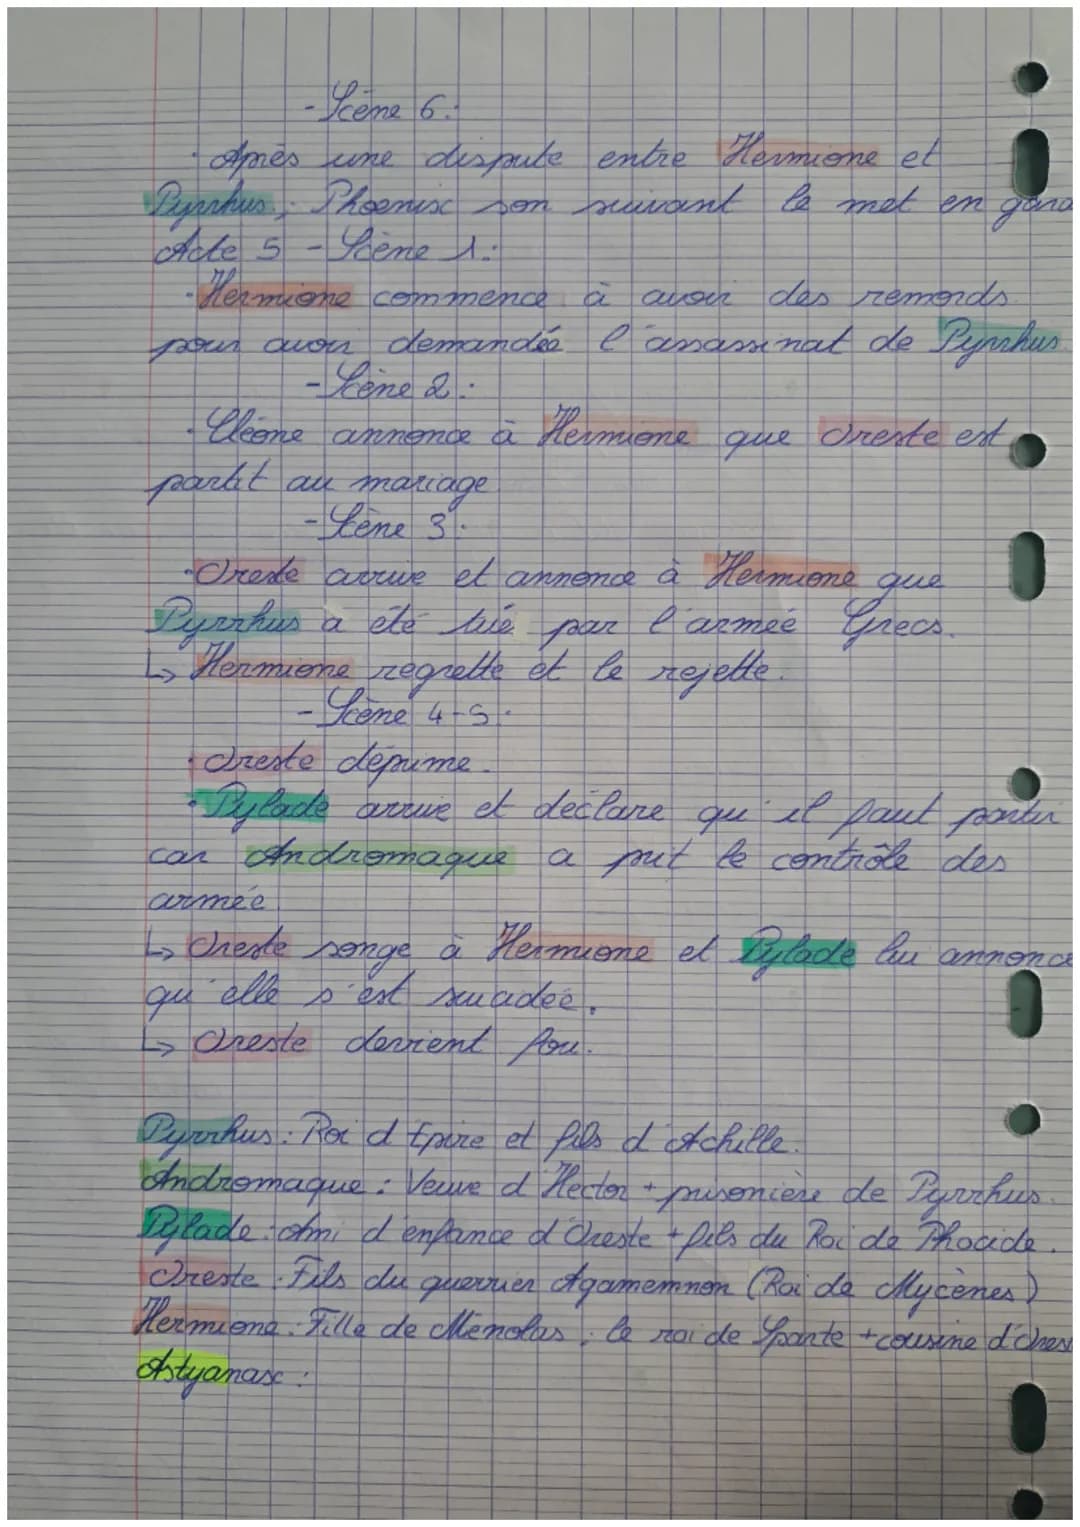 - Scène 6 :
· Après une dispute entre Hermione et
Pyrrhus, Phoenix son suivant le met en gard
Acte 5 - Scène 1 :
· Hermione commence à avoir des remords
pour avoir demandée l'assassinat de Pyrrhus.
- Scène 2 :
· Cléone annonce à Hermione que Oreste est
partit au mariage
- Scène 3 :
· Oreste arrive et annonce à Hermione que
Pyrrhus a été tué par l'armée Grecs.
↳ Hermione regrette et le rejette.
- Scène 4-5 :
· Oreste déprime.
· Pylade arrive et déclare qu'il faut partir
car Andromaque a prit le contrôle des
armée.
↳ Oreste songe à Hermione et Pylade lui annonce
qu'elle s'est suicidée.
↳ Oreste devient fou.
Pyrrhus : Roi d'Epire et fils d'Achille.
Andromaque : Veuve d'Hector + prisonière de Pyrrhus.
Pylade : Ami d'enfance d'Oreste + fils du Roi de Phocide.
Oreste : Fils du guerrier Agamemnon (Roi de Mycènes)
Hermione : Fille de Ménolas ; le roi de Sparte + cousine d'Ores
Astyanax :